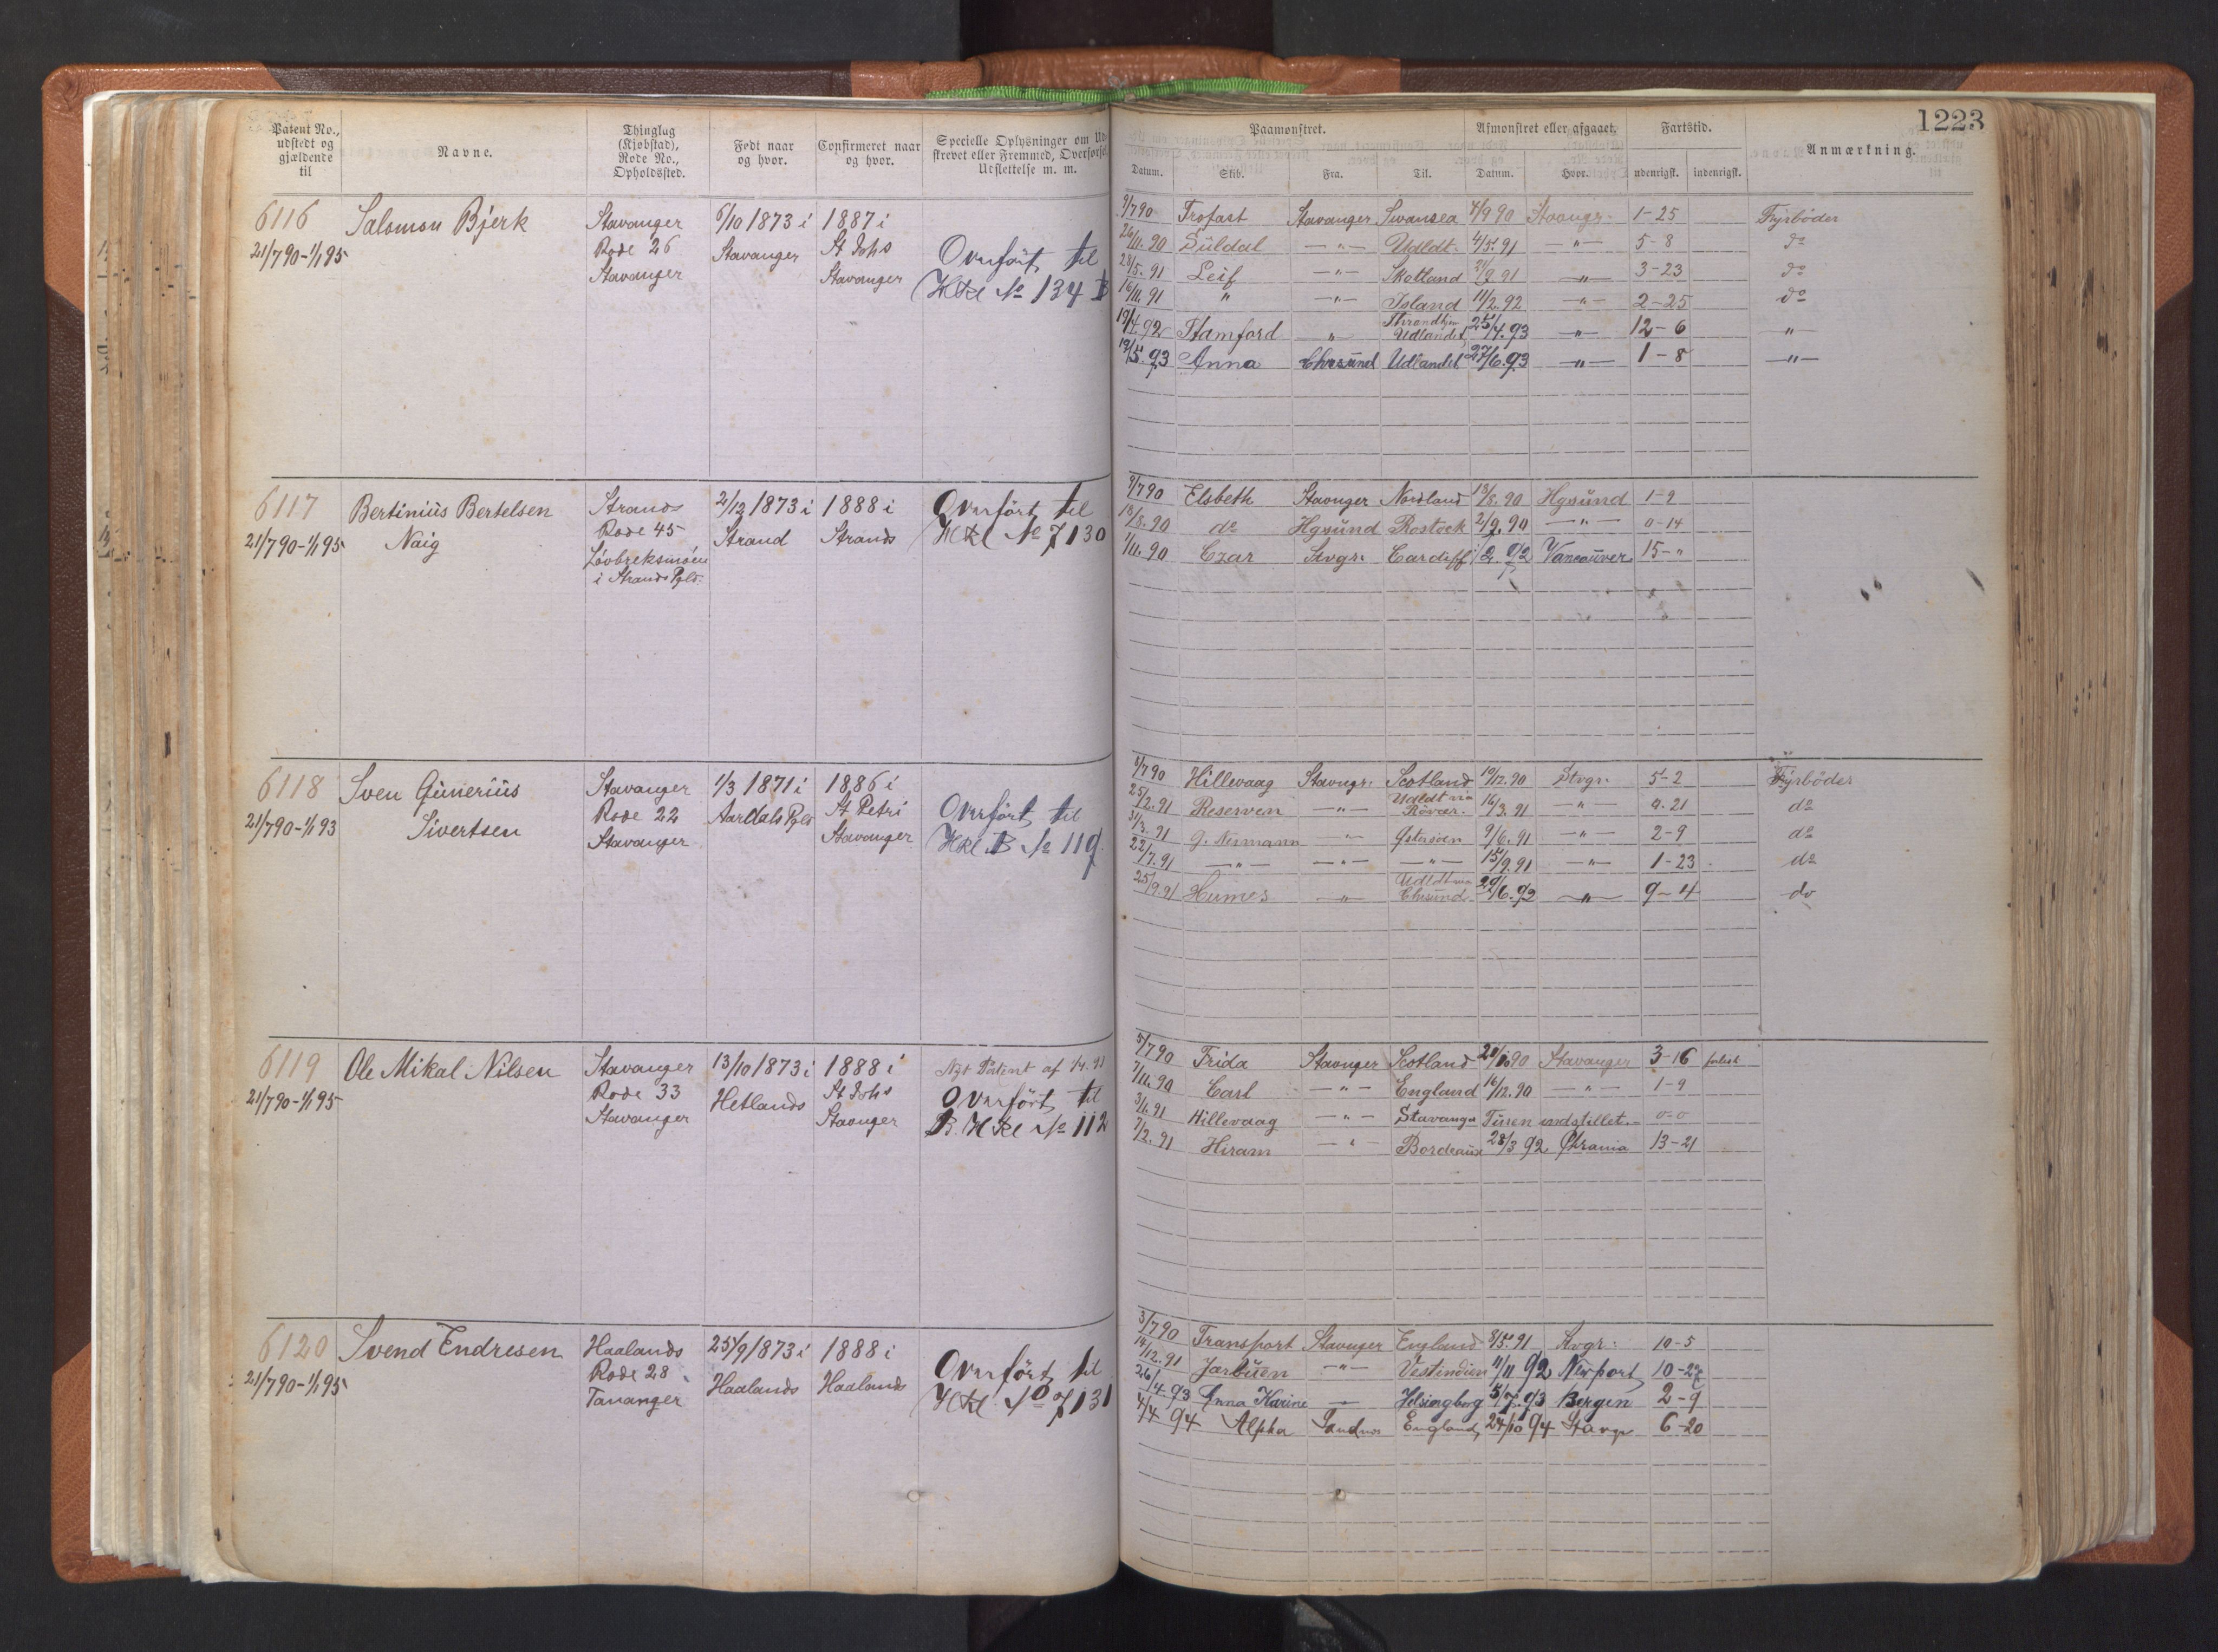 1223
Patent No., udstedt og gjældende til
Navne.
Thinglag (Kjøbstad), Rode No., Opholdssted.
Født naar og hvor.
Confirmeret naar og hvor.
Specielle Oplysninger om Ud-
skrevet eller Fremmed, Overførsel
Udslettelse m. m.
Paamønstret.
Afmønstret eller afgaaet.
Fartstid.
Anmærkning.
Datum. Skib. Fra. Til. Datum. Hvor. udenrigsk. indenrigsk.
6116 Salomon Bjerk Stavanger 6/10 1873 i 1887 i
21/7 90-1/1 95 Rode 26 Stavanger St Johs Overført til
Stavanger Stavanger HKl No 134 B
9/7 90 Trofast Stavanger Swansea 4/9 90 Stavngr. 1-25 Fyrbøder
26/11. 90 Süldal -"- Udldt. 4/5. 91 -"- 5-8 do
28/5. 91 Leif -"- Skotland 21/9. 91 -"- 3-23 do
16/11. 91 " -"- Island 11/2. 92 -"- 2-25 do
19/4. 92 Stamford " Throndhjm Udlandet 25/4. 93 -"- 12-6 "
19/5. 93 Anna Chrsund Udlandet 27/6. 93 -"- 1-8 -"-
6117 Bertinius Bertelsen Strands 2/12 1873 i 1888 i Overført til
21/7 90-1/1 95 Naig Rode 45 Strand Strands HKl No 7130
Løvbreksmoen
i Strands Pgld.
9/7 90 Elsbeth Stavnger Nordland 13/8. 90 Hgsünd 1-9
18/8. 90 do Hgsünd Rostock 2/9. 90 -"- 0-14
/11. 90 Czar Stvgr. Cardiff 2. 92 Vancouver 15-"
6118 Sven Gunerius Stavanger 1/3 1871 i 1886 i
21/7 90-1/1 93 Sivertsen Rode 22 Aardals Pgld St Petri Overført til
Stavanger Stavanger HKl B No 119.
8/7 90 Hillevaag Stavngr. Scotland 10/12. 90 Stvgr. 5-2 Fyrbøder
25/2. 91 Reserven -"- Udldt via Røvær. 16/3. 91 -"- 0.21 do
31/3. 91 G. Nermann -"- Østersøen 9/6. 91 -"- 2-9 do
22/7. 91 -"- -"- -"- 15/9. 91 -"- 1-23 do
25/9. 91 Humes " Udldt via Chrsund. 29/6. 92 -"- 9-4 do
6119 Ole Mikal Nilsen Stavanger 13/10 1873 i 1888 i Nyt Patent af 1/4. 91
21/7 90-1/1 95 Rode 33 Hetlands St Johs Overført til
Stavanger Stavnger B. HKl No 112
5/7 90 Frida Stavnger Scotland 21/10 90 Stavanger 3-16
7/11. 90 Carl -"- England 16/12. 90 -"- 1-9
3/1. 91 Hillevaag -"- Stavanger Turen indstillet. 0-0
7/2. 91 Hiram -"- Bordeaux 28/3 92 Chrania 13-21
6120 Svend Endresen Haalands 25/9 1873 i 1888 i Overført til
21/7 90-1/1 95 Rode 28 Haalands Haalands HKl No 7131
Tananger
3/7 90 Transport Stavnger England 8/5. 91 Stvgr. 10-5
14/12. 91 Jarbuen -"- Vestindien 11/11 92 Newport 10-27
26/4. 93 Anna Karine - Helsingborg 5/7. 93 Bergen 2-9
4/4 94 Alpha Sandnes England 24/10 94 Stavgr 6-20